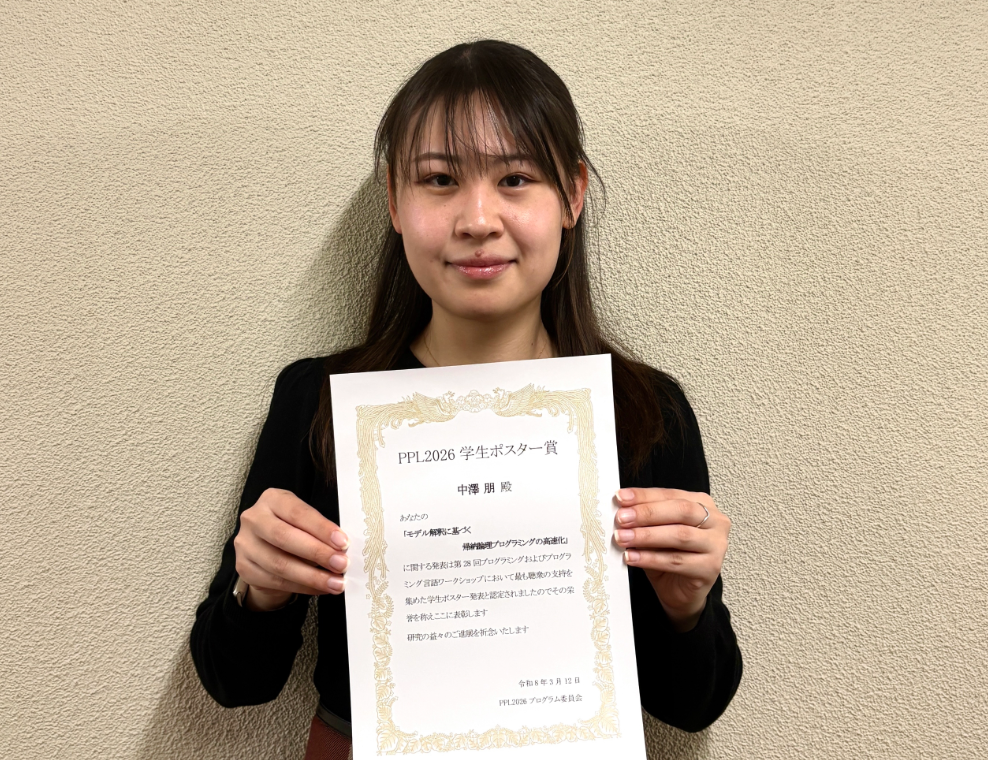 PPL2026 学生ポスター賞
中澤 朋 殿
あなたの
「モデル解釈に基づく
帰納論理プログラミングの高速化」
に関する発表は第 28 回プログラミングおよびプログラ
ミング言語ワークショップにおいて最も聴衆の支持を
集めた学生ポスター発表と認定されましたのでその栄
誉を称えここに表彰します
研究の益々のご進展を祈念いたします
令和 8 年 3 月 12 日
PPL2026 プログラム委員会